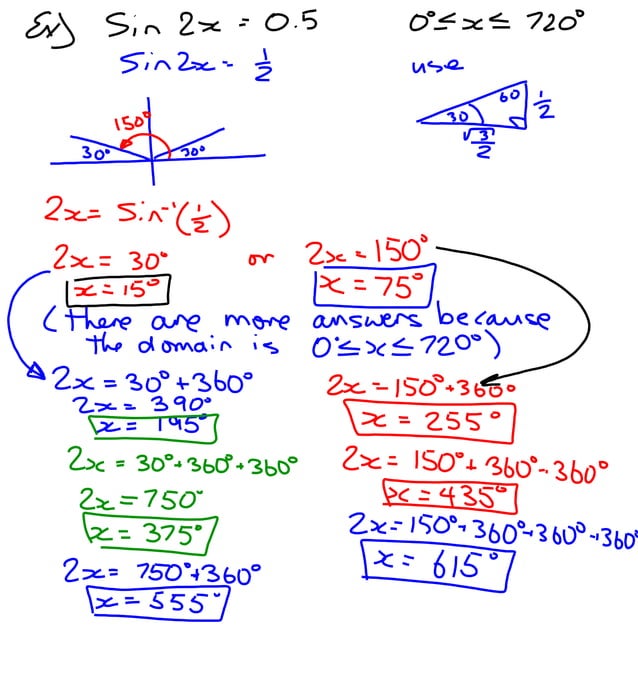 Ex) Sin 2x = 0.5 0° ≤ x ≤ 720°
Sin 2x = 1/2 use
60 1/2
30
√3/2
150°
30° 30°
2x = Sin⁻¹(1/2)
2x = 30° or 2x = 150°
x = 15° x = 75°
(there are more answers because
the domain is 0° ≤ x ≤ 720°)
2x = 30° + 360° 2x = 150° + 360°
2x = 390°
x = 195° x = 255°
2x = 30° + 360° + 360° 2x = 150° + 360° + 360°
2x = 750° x = 435°
x = 375° 2x = 150° + 360° + 360° + 360°
2x = 750° + 360° x = 615°
x = 555°